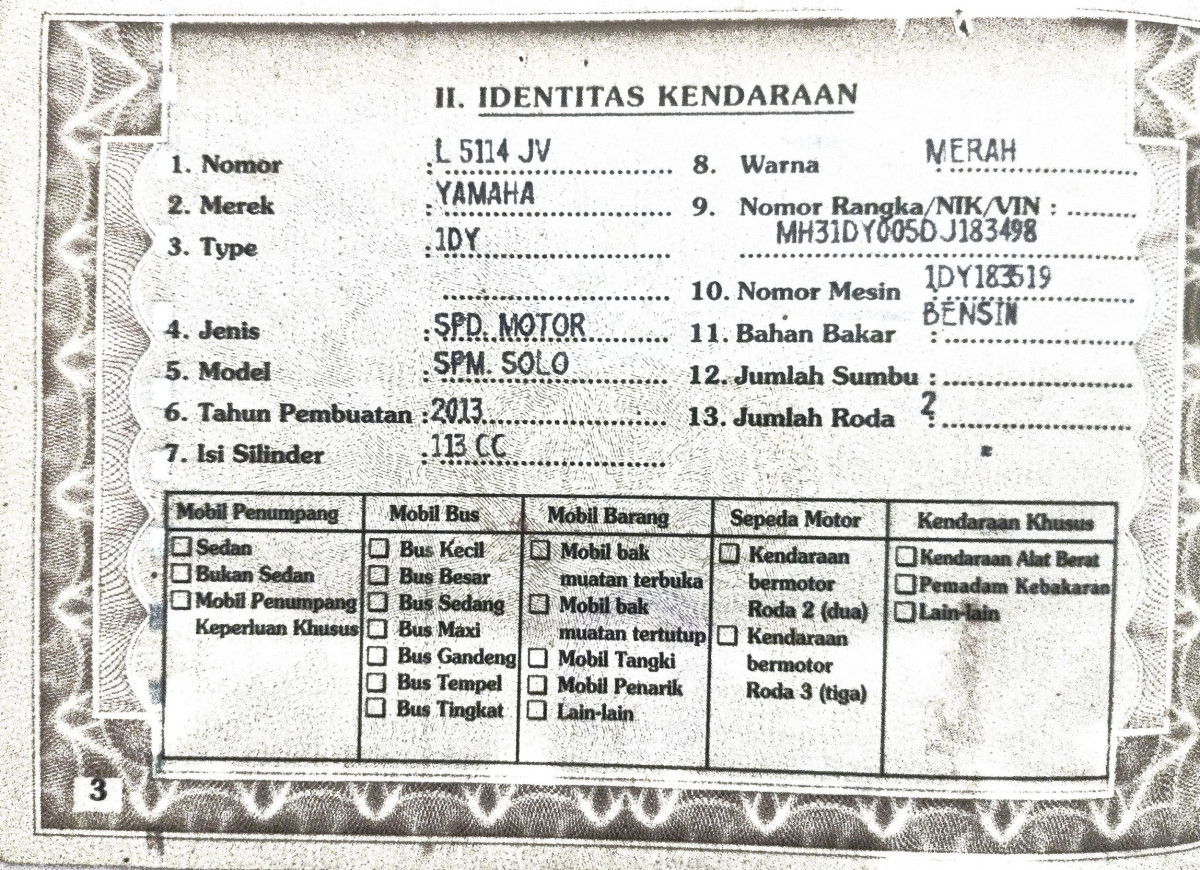 II. IDENTITAS KENDARAAN
1. Nomor : L 5114 JV
2. Merek : YAMAHA
3. Type : 1DY
4. Jenis : SPD. MOTOR
5. Model : SPM. SOLO
6. Tahun Pembuatan : 2013
7. Isi Silinder : 113 CC
8. Warna : MERAH
9. Nomor Rangka/NIK/VIN :
MH31DY005DJ183498
10. Nomor Mesin : 1DY183519
11. Bahan Bakar : BENSIN
12. Jumlah Sumbu :
13. Jumlah Roda : 2
Mobil Penumpang
Sedan
Bukan Sedan
Mobil Penumpang
Keperluan Khusus
Mobil Bus
Bus Kecil
Bus Besar
Bus Sedang
Bus Maxi
Bus Gandeng
Bus Tempel
Bus Tingkat
Mobil Barang
Mobil bak
muatan terbuka
Mobil bak
muatan tertutup
Mobil Tangki
Mobil Penarik
Lain-lain
Sepeda Motor
Kendaraan
bermotor
Roda 2 (dua)
Kendaraan
bermotor
Roda 3 (tiga)
Kendaraan Khusus
Kendaraan Alat Berat
Pemadam Kebakaran
Lain-lain
3